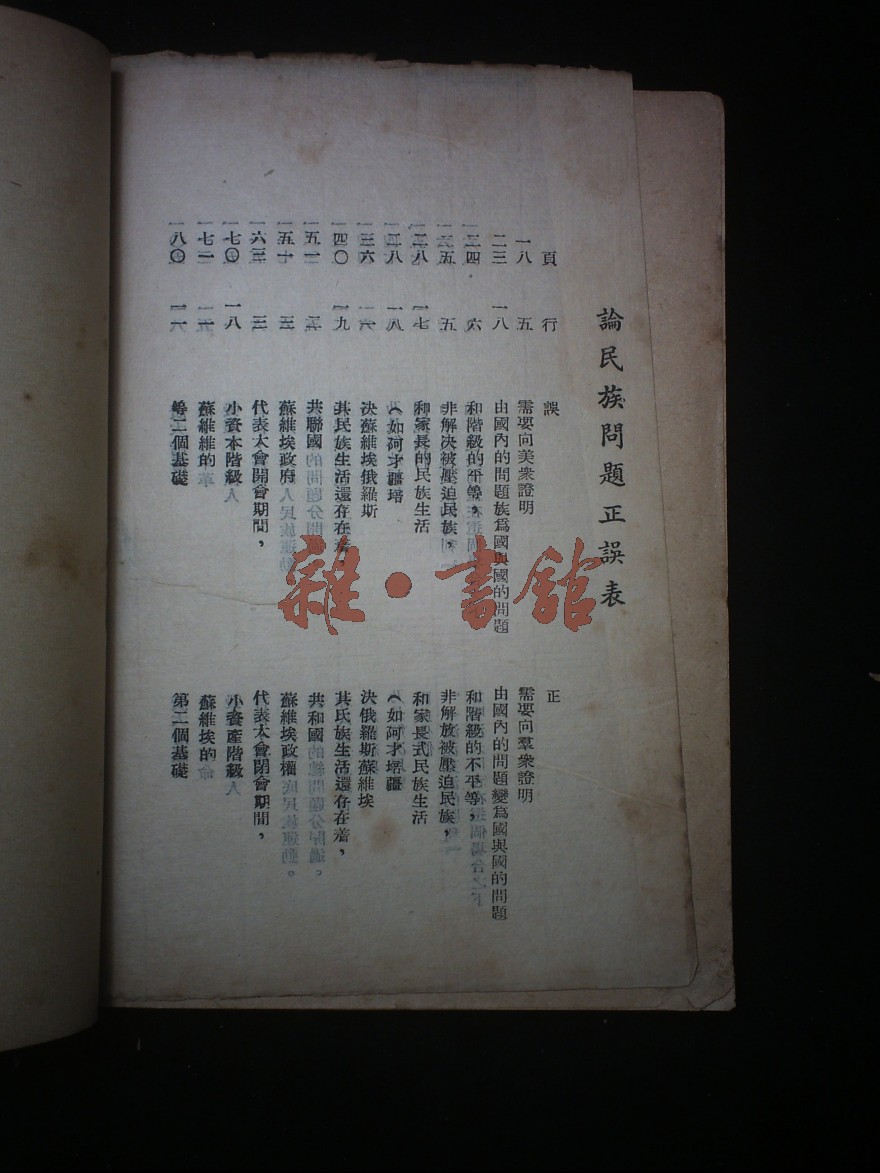 論民族問題正誤表
頁 行 誤 正
一八 五 需要向美衆證明 需要向羣衆證明
二三 一八 由國內的問題族爲國與國的問題 由國內的問題變爲國與國的問題
一二四 六 和階級的平等， 和階級的不平等，
一二五 五 非解決被壓迫民族， 非解放被壓迫民族，
一二八 一七 和家長的民族生活 和家長式民族生活
一二八 一八 （如阿才疆塔 （如阿才塔疆
一三六 一六 決蘇維埃俄羅斯 決俄羅斯蘇維埃
一四〇 一九 其民族生活還存在着， 其氏族生活還存在着，
一五一 共聯國 共和國
一五七 三 蘇維埃政府 蘇維埃政權
一六三 三 代表大會開會期間， 代表大會閉會期間，
一七〇 一八 小資本階級 小資產階級
一七二 蘇維維的 蘇維埃的
一八〇 一六 二個基礎 第二個基礎
雜·書館